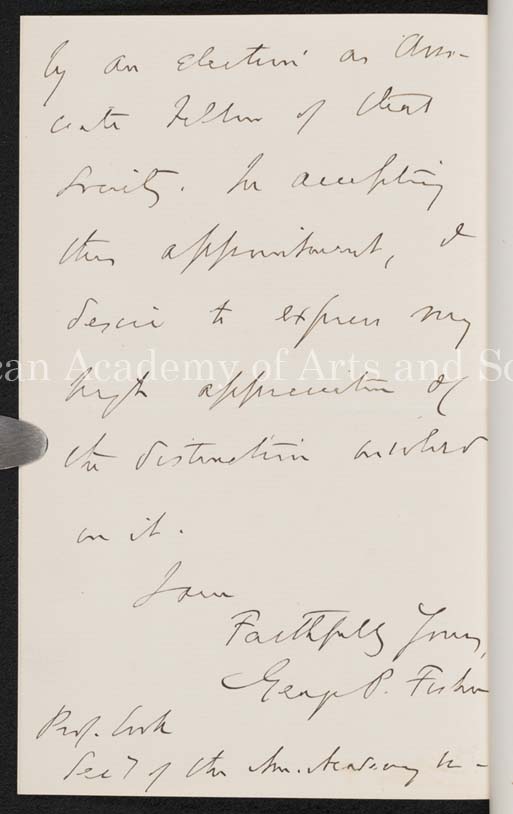 by an election as Asso-
ciate Fellow of that
Society. In accepting
this appointment, I
desire to express my
can Academy of Arts and Sc
high appreciation of
the distinction involved
in it.
I am
Faithfully Yours,
George P. Fisher
Prof. Cook
Sec'y of the Am. Academy &c -